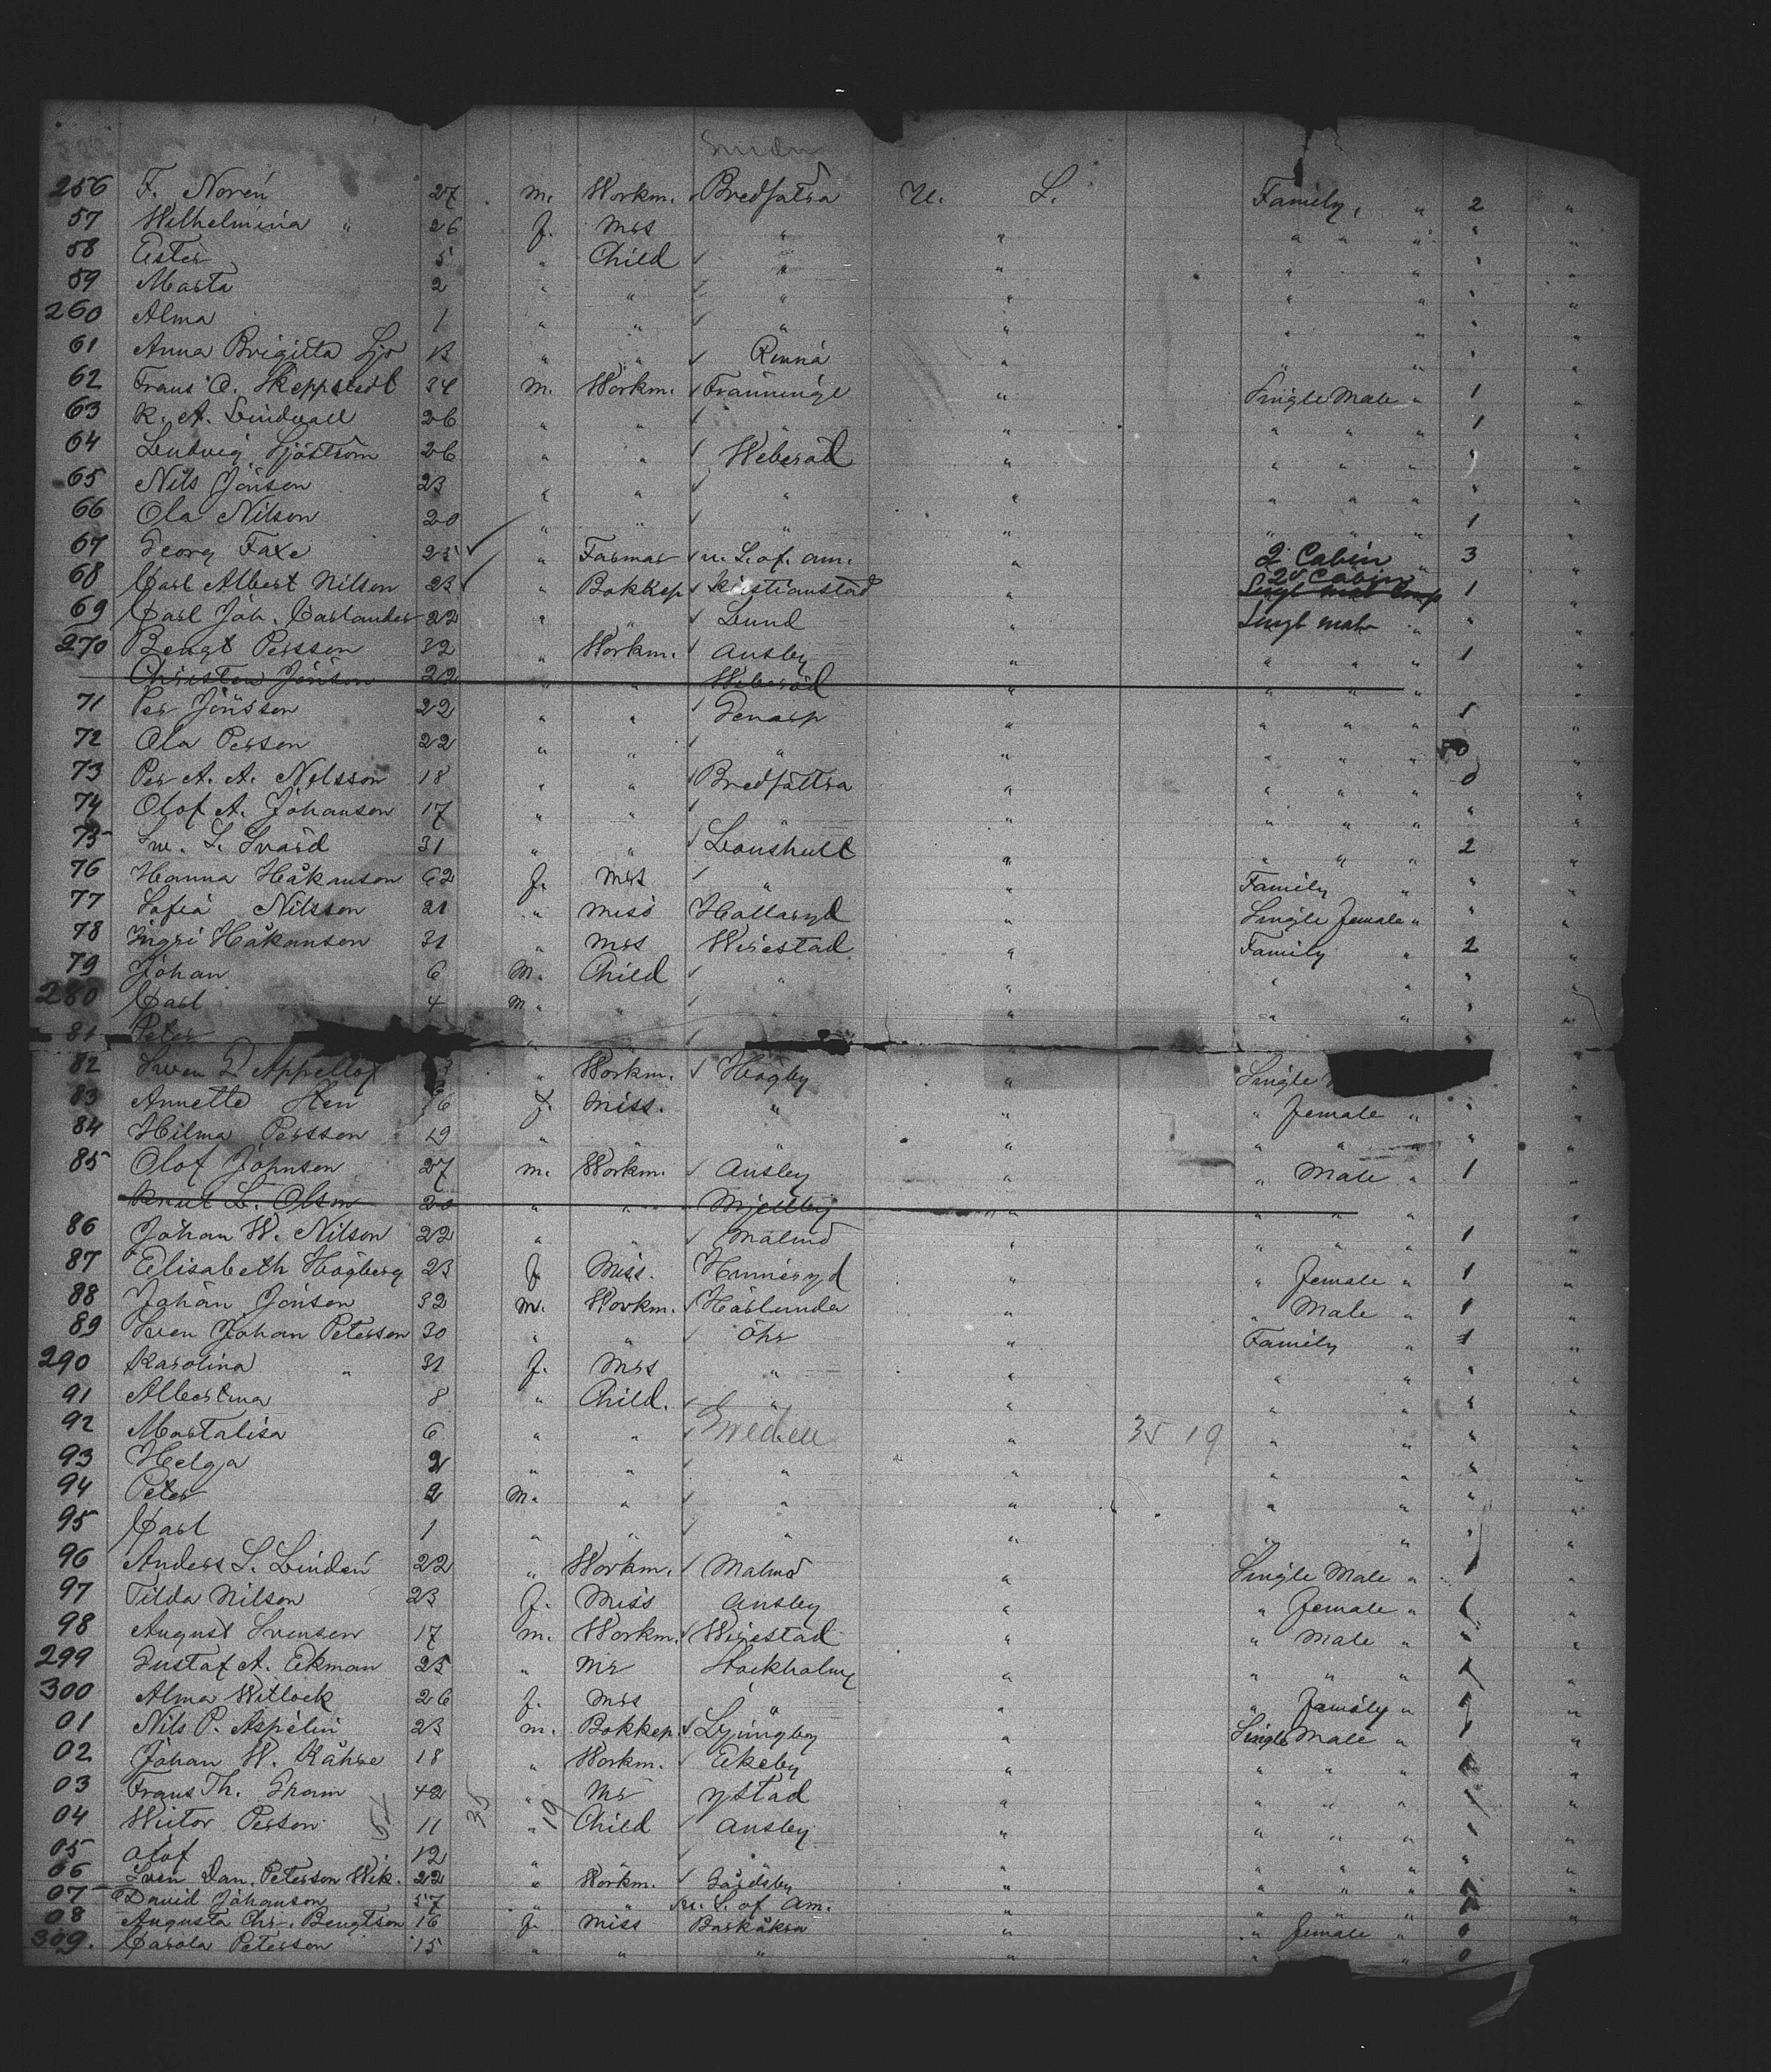 256 F. Norén 27 m. Workm. Bredsätra U. S. Family, " 2 "
57 Wilhelmina " 26 f. Mrs " " " " " " "
58 Ester 5 " Child " " " " " "
59 Marta 2 " " " " " " " "
260 Alma 1 " " " " " " " "
61 Anna Brigitta 13 " " Rinna " " " " "
62 Frans O. Skeppstedt 34 m. Workm. Tranninge " Single Male " 1 "
63 K. A. Lindvall 26 " " " " " " " 1 "
64 Ludvig Sjöström 26 " " Weberöd " " " " "
65 Nils Jönson 23 " " " " " " " " "
66 Ola Nilson 20 " " " " " " " 1 "
67 Georg Faxe 25 " Farmer U. S. of. am. 2 Cabin 3
68 Carl Albert Nilson 23 " Bokkep Kristianstad " 2d Cabin 1 "
69 Carl Joh. Carlander 22 " " Lund " Singl male " " "
270 Bengt Persson 32 " Workm. Ausby " " " " 1 "
Christen Jönson 22 " " Weberöd " " " " "
71 Per Jönsson 22 " " Genarp " " " " 1 "
72 Ola Person 22 " " " " " " " "
73 Per A. A. Nilsson 18 " " Bredsättra " " " " 0 "
74 Olof A. Johanson 17 " " " " " " " " "
75 Sw. S. Svärd 31 " " Lönshult " " " " 2 "
76 Hanna Håkanson 62 f. Mrs " " Family " " "
77 Sofia Nilsson 21 " Miss Hallaryd " Single female " " "
78 Ingri Håkanson 31 " Mrs Wirestad " Family " 2 "
79 Johan 6 m. Child " " " " " "
280 Carl 4 m " " " " " " " "
81 Peter " "
82 Swen Appellof " Workm. Högby " Single
83 Annette Sten f. Miss. " " " female " " "
84 Hilma Persson 19 " " " " " " " " "
85 Olof Johnson 27 m. Workm. Ausby " " Male " 1 "
Knut L. Olson 20 " " Mjellby " " " " "
86 Johan W. Nilson 22 " " Malmö " " " " 1 "
87 Elisabeth Högberg 23 f. Miss. Hinneryd " " female " 1 "
88 Johan Jonson 32 m. Workm. Härlunda " " Male " 1 "
89 Sven Johan Peterson 30 " " Öhr " Family " 1 "
290 Karolina " 31 f. Mrs " " " " " "
91 Albertina 8 " Child. " " " " " "
92 Martalisa 6 " " Sweden " 35 19 " " " "
93 Helga 2 " " " " " " " "
94 Peter 2 m. " " " " " " "
95 Carl 1 " " " " " " " "
96 Anders S. Lindén 22 " Workm. Malmö " Single Male " 1 "
97 Tilda Nilson 23 f. Miss Ausby " " female " 1 "
98 August Svenson 17 m. Workm. Wirestad " " Male " "
299 Gustaf A. Ekman 25 " Mr Stockholm " " " " 1 "
300 Alma Witlock 26 f. Mrs " " " Family " 1 "
01 Nils P. Aspelin 23 m. Bokkep. Ljungby " Single Male " 1 "
02 Johan W. Råhse 18 " Workm. Ekeby " " " " "
03 Frans Th. Gram 42 " Mr Ystad " " " " "
04 Wiktor Person 11 35 " 19 Child Ausby " " " " "
05 Olof 12 " " " " " "
06 Sven Dan. Peterson Wik. 22 " Workm. Gårdsby " " " " "
07 David Johanson 57 " " U. S. of Am. " " " " "
08 Augusta Chr. Bengtson 16 f. Miss Barkåkra " " female " 0 "
309. Carola Peterson 15 " " " " " " 0 "